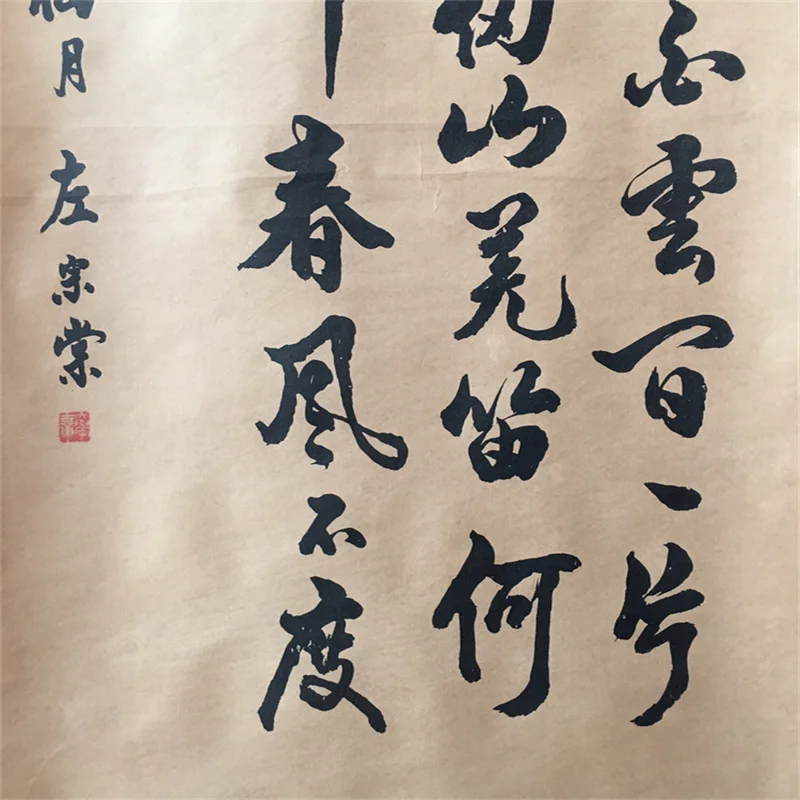 白雲間一片
仞山羌笛何
春風不度
月 左宗棠